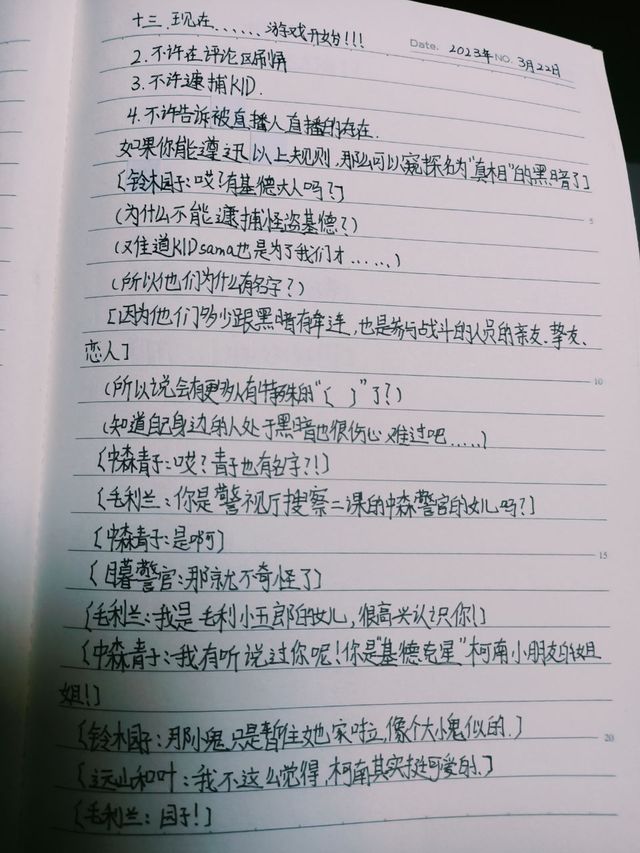 Date. 2023年 NO. 3月22日
十三.现在......游戏开始!!!
2.不许在评论区剧情
3.不许逮捕KID.
4.不许告诉被直播人直播的存在.
如果你能遵迅以上规则,那么可以窥探名为"真相"的黑暗了]
[铃木园子:哎?有基德大人吗?]
(为什么不能逮捕怪盗基德?)
(难道KIDsama也是为了我们才......)
(所以他们为什么有名字?)
[因为他们多少跟黑暗有牵连,也是参与战斗的人员的亲友、挚友、
恋人]
(所以说会有更多人有特殊的"[ ]"了?)
(知道自己身边的人处于黑暗也很伤心难过吧.....)
[中森青子:哎?青子也有名字?!]
[毛利兰:你是警视厅搜察二课的中森警官的女儿吗?]
[中森青子:是啊]
[目暮警官:那就不奇怪了]
[毛利兰:我是毛利小五郎的女儿,很高兴认识你!]
[中森青子:我有听说过你呢!你是"基德克星"柯南小朋友的姐
姐!]
[铃木园子:那小鬼只是暂住她家啦,像个大小鬼似的.]
[远山和叶:我不这么觉得,柯南其实挺可爱的.]
[毛利兰:园子!]
5
10
15
20